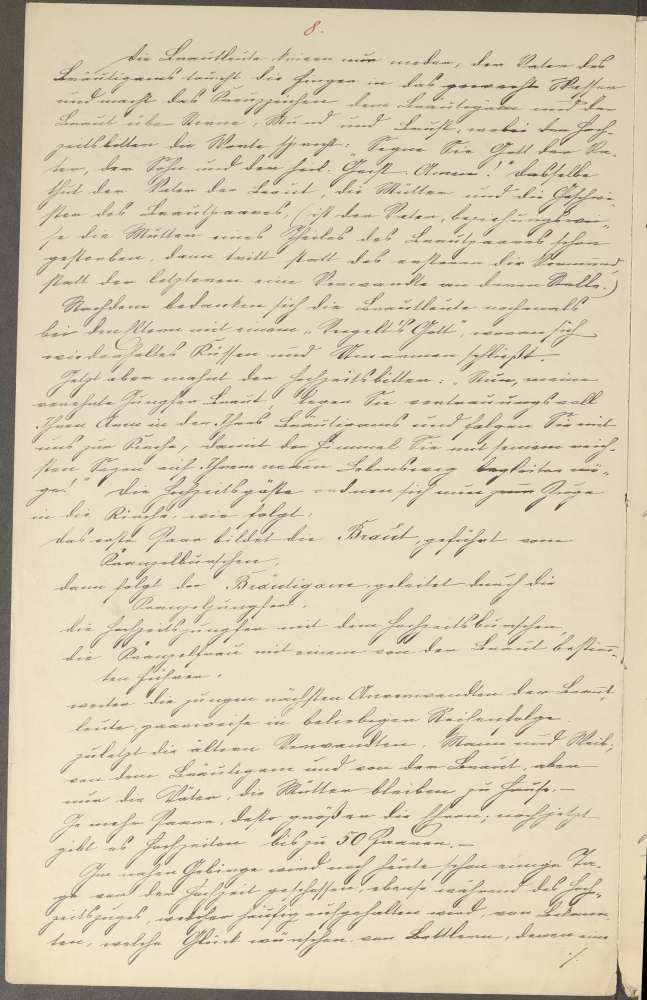 8.
Die Brautleute knieen nun nieder, der Vater des
Bräutigams taucht die Finger in das geweihte Wasser
und macht das Kreuzzeichen dem Bräutigam und der
Braut über Stirne, Mund und Brust, wobei der Hoch-
zeitsbitter die Worte spricht: "Segne Sie Gott der Va-
ter, der Sohn und der heil. Geist. Amen!" Dasselbe
thut der Vater der Braut, die Mütter und die Geschwi-
ster des Brautpaares, (ist der Vater, beziehungswei-
se die Mutter eines Theiles des Brautpaares schon
gestorben, dann tritt statt des ersteren die Vormund
statt der letzteren eine Verwandte an deren Stelle.)
Nachdem bedanken sich die Brautleute nochmals
bei den Eltern mit einem "Vergelt's Gott", woran sich
wiederholtes Küssen und Umarmen schließt.
Jetzt aber mahnt der Hochzeitsbitter: "Nun, meine
verehrte Jungfer Braut, legen Sie vertrauungsvoll
Ihren Arm in den Ihres Bräutigams und folgen Sie mit
uns zur Kirche, damit der Himmel Sie mit seinem reich-
sten Segen auf Ihrem neuen Lebensweg begleiten mö-
ge!" Die Hochzeitsgäste ordnen sich nun zum Zuge
in die Kirche, wie folgt:
das erste Paar bildet die Braut, geführt vom
Kranzelburschen,
dann folgt der Bräutigam, geleitet durch die
Kranzeljungfer,
die Hochzeitsjungfer mit dem Hochzeitsburschen,
die Kranzelfrau mit einem von der Braut bestimm-
ten Führer,
weiter die jungen nächsten Anverwandten der Braut-
leute, paarweise in beliebiger Reihenfolge.
zuletzt die ältern Verwandten, Mann und Weib,
von dem Bräutigam und von der Braut, aber
nur die Väter, die Mütter bleiben zu Hause. —
Je mehr Paare, desto größer die Ehren; noch jetzt
gibt es Hochzeiten bis zu 50 Paaren. —
Im nahen Gebirge wird noch heute schon einige Ta-
ge vor der Hochzeit geschossen, ebenso während des Hoch-
zeitszuges, welcher häufig aufgehalten wird, von Bekann-
ten, welche Glück wünschen, von Bettlern, denen eine
./.